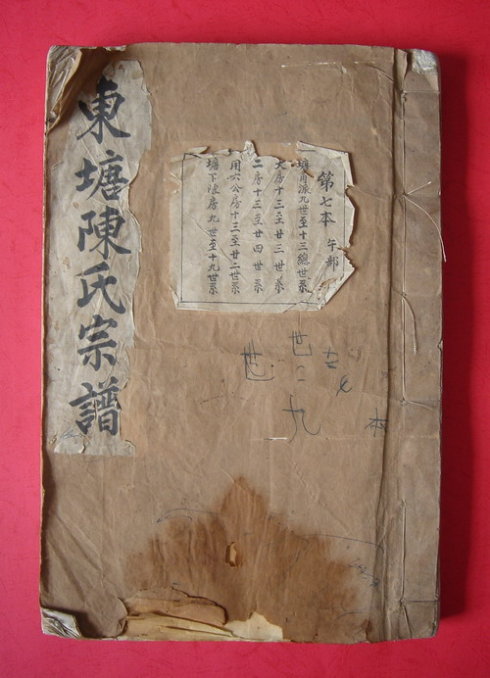 東塘陳氏宗譜
第七本 午部
塘角派九世至十三總世系
大房十三至廿三世系
二房十三至廿四世系
用六公房十三至廿二世系
塘下陸房九世至十九世系
世
九
七
本
世